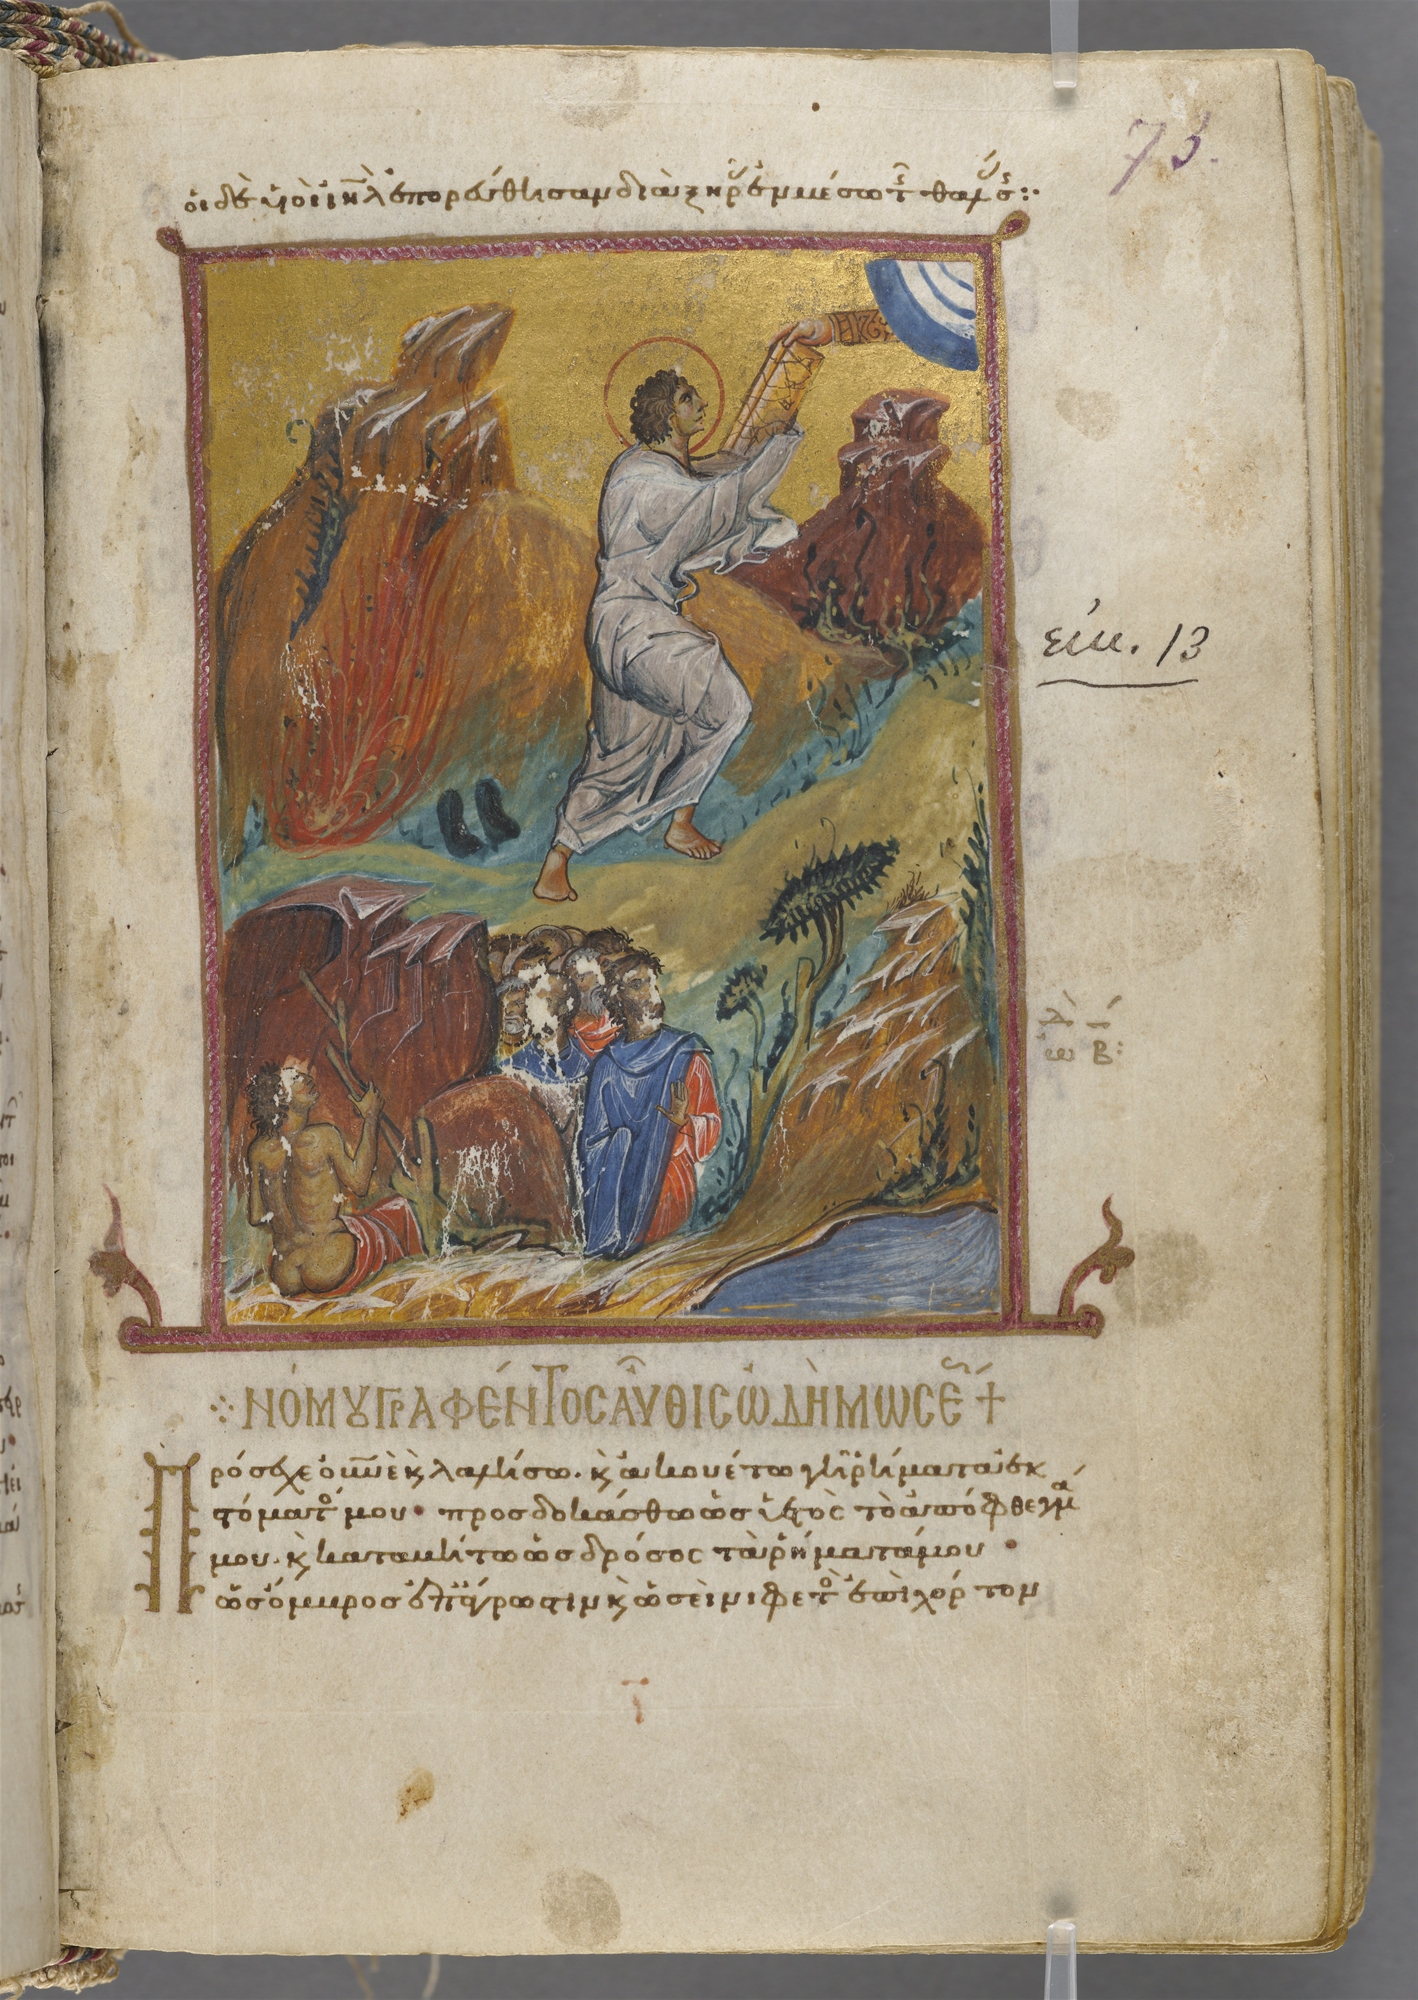 73.
οἱ δὲ υἱοὶ ιη̅λ ἐπορεύθησαν διὰ ξηρᾶς ἐν μέσω τ̑ θαλ :·
εἰκ. 13
ΝΌΜΟΥ ΓΡΑΦΈΝΤΟΣ ΑΥ̓͂ΘΙΣ ὨΔῊ ΜΩΣΕ
ᾠ Β :
Πρόσχε οὐνὲ κ λαλήσω. κ ἀκουέτω γῆ ῥήματα ἐκ
στόματό μου· προσδοκάσθω ὡς ὑετὸς τὸ ἀπόφθεγμα
μου. κ καταβήτω ὡς δρόσος τὰ ῥήματά μου·
ὡς ὄμβρος ἐπ ἄγρωστιν κ ὡσεὶ νιφετὸ ἐπὶ χόρτον